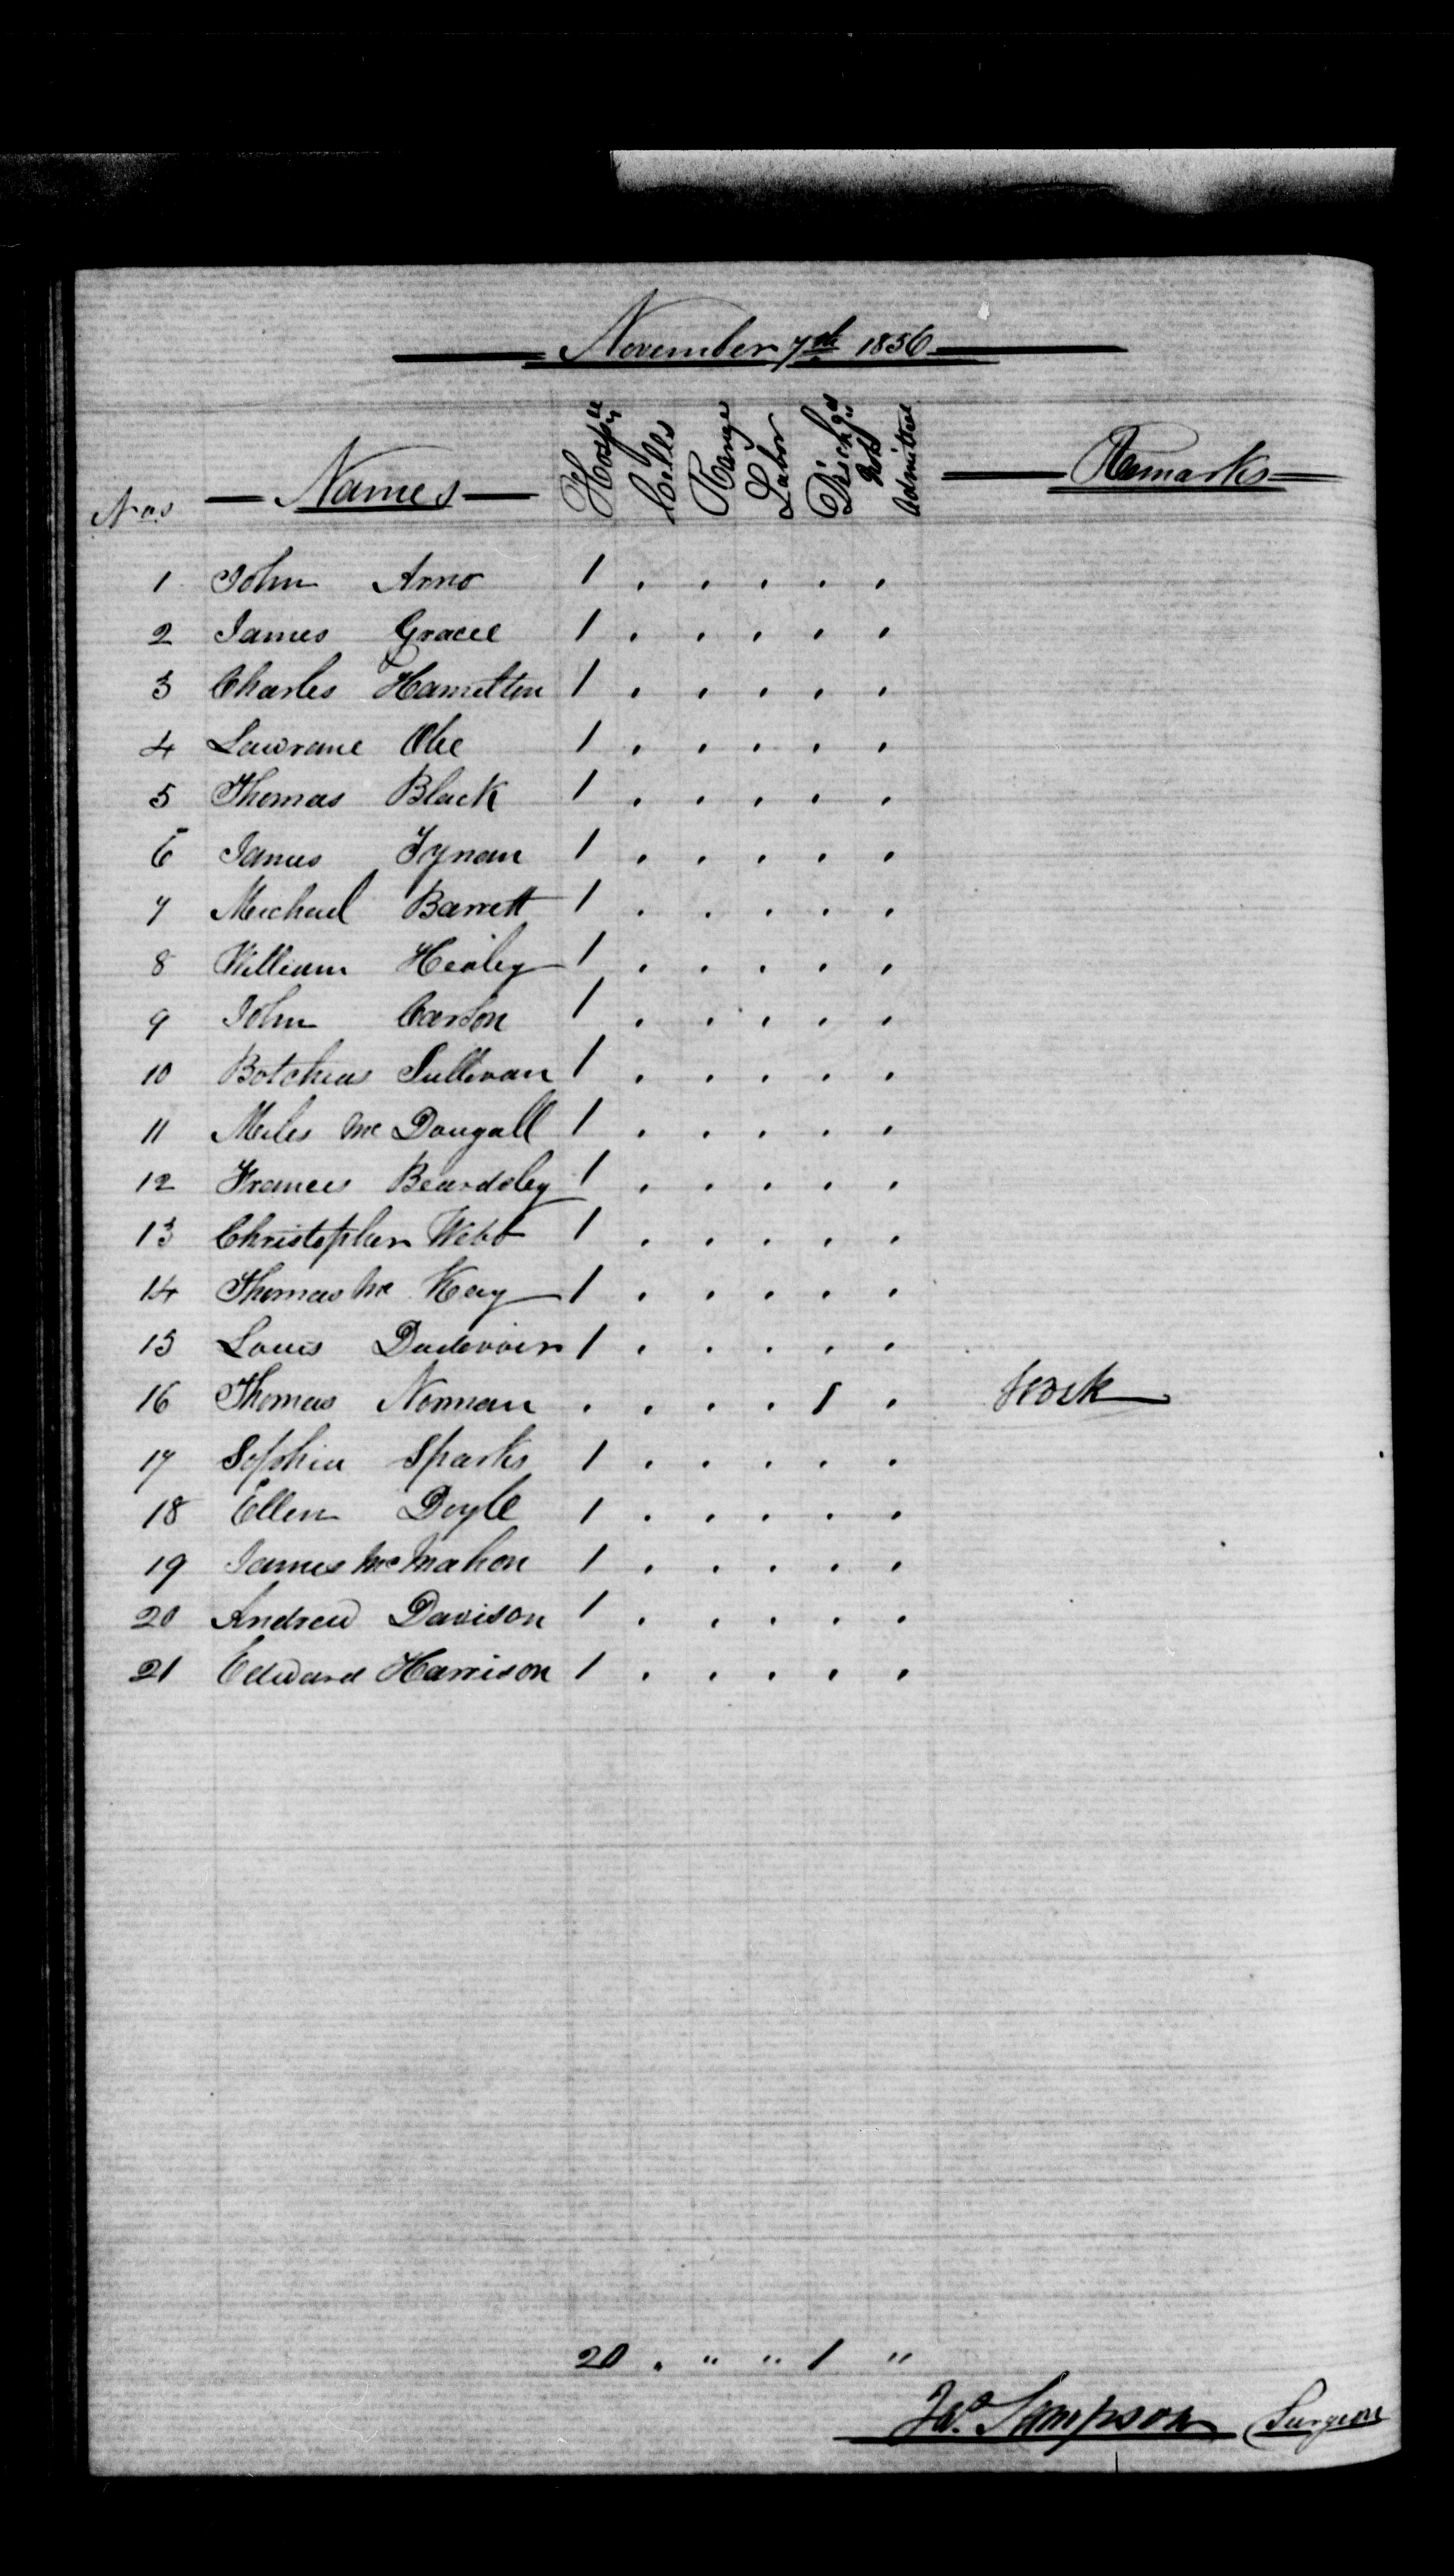 November 7th 1856
Nos Names Hospl Cells Range Labor Dischgd Not Admitted Remarks
1 John Arno 1 . . . . .
2 James Gracie 1 . . . . .
3 Charles Hamilton 1 . . . . .
4 Lawrane 1 . . . . .
5 Thomas Black 1 . . . . .
6 James Tynan 1 . . . . .
7 Michael Barrett 1 . . . . .
8 William Healey 1 . . . . .
9 John Carson 1 . . . . .
10 Sullivan 1 . . . . .
11 Miles Mc Dougall 1 . . . . .
12 Francis Beardsley 1 . . . . .
13 Christopher Webb 1 . . . . .
14 Thomas Mc Kay 1 . . . . .
15 Louis 1 . . . . .
16 Thomas Norman . . . . 1 . Work
17 Sophia Sparks 1 . . . . .
18 Ellen Doyle 1 . . . . .
19 James McMahon 1 . . . . .
20 Andrew Davison 1 . . . . .
21 Edward Harrison 1 . . . . .
20 . " " 1 "
Jas. Sampson Surgeon